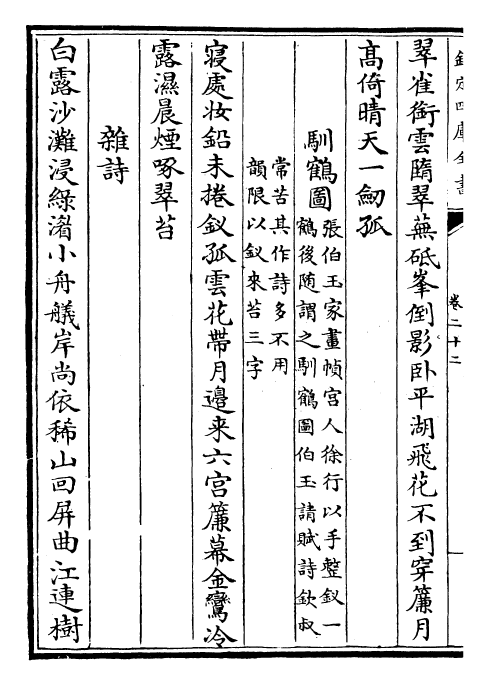 欽定四庫全書
卷二十二
翠雀銜雲隨翠蕪砥峯倒影卧平湖飛花不到穿簾月
髙倚晴天一劒孤
馴鶴圖
張伯玉家畫幀宫人徐行以手整釵一
鶴後随謂之馴鶴圖伯玉請賦詩欽叔
常苦其作詩多不用
韻限以釵來苔三字
寝處妝鉛未捲釵孤雲花帶月邉来六宫簾幕金鸞冷
露濕晨煙啄翠苔
雜詩
白露沙灘浸綠潴小舟艤岸尚依稀山回屏曲江連樹